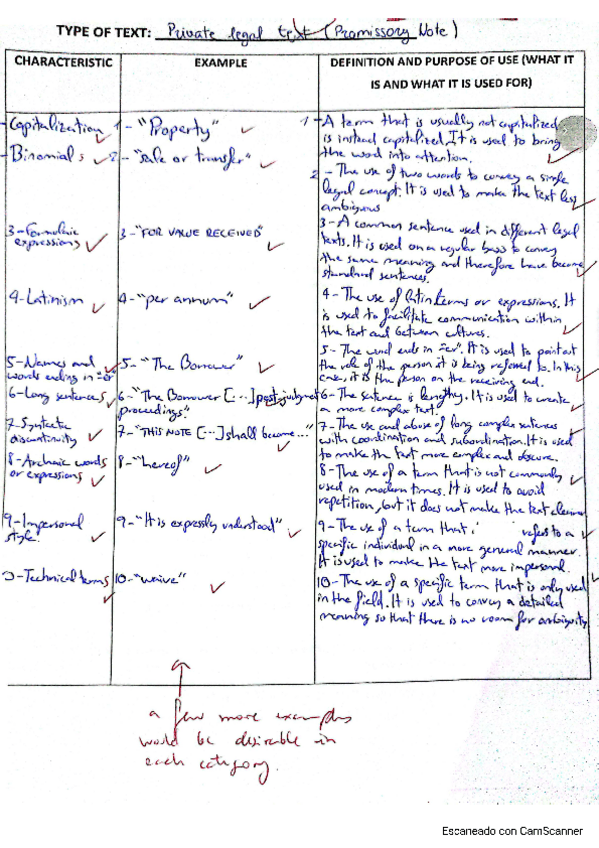 TYPE OF TEXT: Private legal text (Promissory Note)
CHARACTERISTIC
EXAMPLE
DEFINITION AND PURPOSE OF USE (WHAT IT
IS AND WHAT IT IS USED FOR)
- Capitalization
1- "Property"
1- A term that is usually not capitalized
is instead capitalized. It is used to bring
the word into attention.
- Binomials
2- "sale or transfer"
2- The use of two words to convey a single
legal concept. It is used to make the text less
ambiguous
3- Formulaic
expressions
3- "FOR VALUE RECEIVED"
3- A common sentence used in different legal
texts. It is used on a regular basis to convey
the same meaning and therefore have become
standard sentences.
4- Latinism
4- "per annum"
4- The use of latin terms or expressions. It
is used to facilitate communication within
the text and between cultures.
5- Names and
words ending in -er
5- "The Borrower"
5- The word ends in "er". It is used to point out
the role of the person it is being referred to. In this
case, it is the person on the receiving end.
6- Long sentences
6- "The Borrower [...] post judgment
proceedings"
6- The sentence is lengthy. It is used to create
a more complex text.
7- Syntactic
discontinuity
7- "THIS NOTE [...] shall become..."
7- The use and abuse of long complex sentences
with coordination and subordination. It is used
to make the text more complex and obscure.
8- Archaic words
or expressions
8- "hereof"
8- The use of a term that is not commonly
used in modern times. It is used to avoid
repetition, but it does not make the text clearer
9- Impersonal
style
9- "It is expressly understood"
9- The use of a term that refers to a
specific individual in a more general manner.
It is used to make the text more impersonal.
0- Technical terms
10- "waive"
10- The use of a specific term that is only used
in the field. It is used to convey a detailed
meaning so that there is no room for ambiguity
a few more examples
would be desirable in
each category.
Escaneado con CamScanner